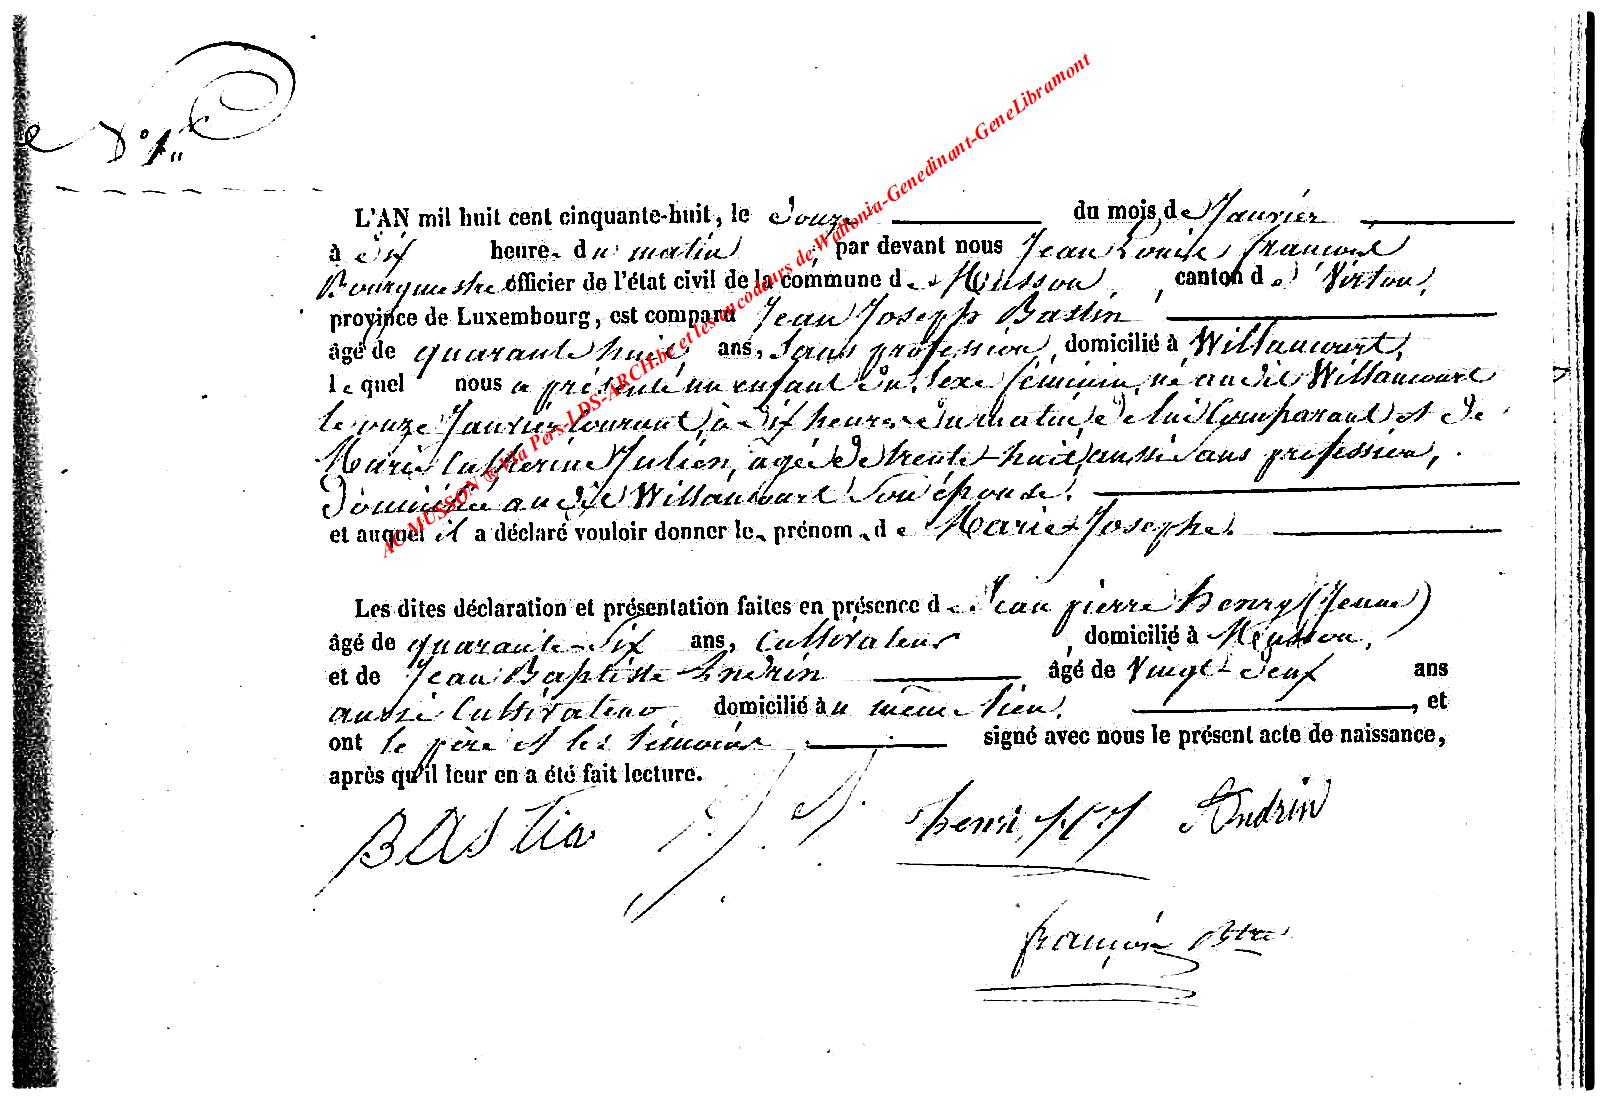 N° 1er
L'AN mil huit cent cinquante-huit, le Douze du mois de Janvier
à dix heure du matin par devant nous Jean Louis françois
Bourgmestre officier de l'état civil de la commune de Musson, canton de Virton,
province de Luxembourg, est comparu Jean Joseph Bastin
âgé de quarante huit ans, Sans profession, domicilié à Willancourt,
lequel nous a présenté un enfant du Sexe féminin, né audit Willancourt
le onze Janvier Courant, à dix heures du matin, de lui Comparant et de
Marie Catherine Julien, agée de trente-huit, aussi sans profession,
Domiciliée audit Willancourt Son épouse,
et auquel il a déclaré vouloir donner le prénom de Marie-Josephe.
Les dites déclaration et présentation faites en présence de Jean pierre henry (Jeune)
âgé de quarante-Six ans, Cultivateur, domicilié à Musson,
et de Jean Baptiste Andrin âgé de Vingt-neuf ans
aussi Cultivateur, domicilié au même lieu, et
ont le père et les témoins signé avec nous le présent acte de naissance,
après qu'il leur en a été fait lecture.
BAStin J. J. henri, J P J Andrin
françois Btre
AC MUSSON ® Via Pers-LDS-ARCH.be et les encodeurs de Wallonia-Genedinant-GeneLibramont